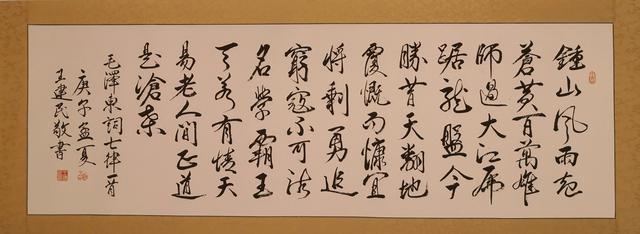 鍾山风雨起
蒼黃百萬雄
師過大江虎
踞龙盤今
勝昔天翻地
覆慨而慷宜
將剩勇追
窮寇不可沽
名學霸王
天若有情天
易老人间正道
是滄桑
毛澤東詞七律一首
庚子孟夏
王建民敬書